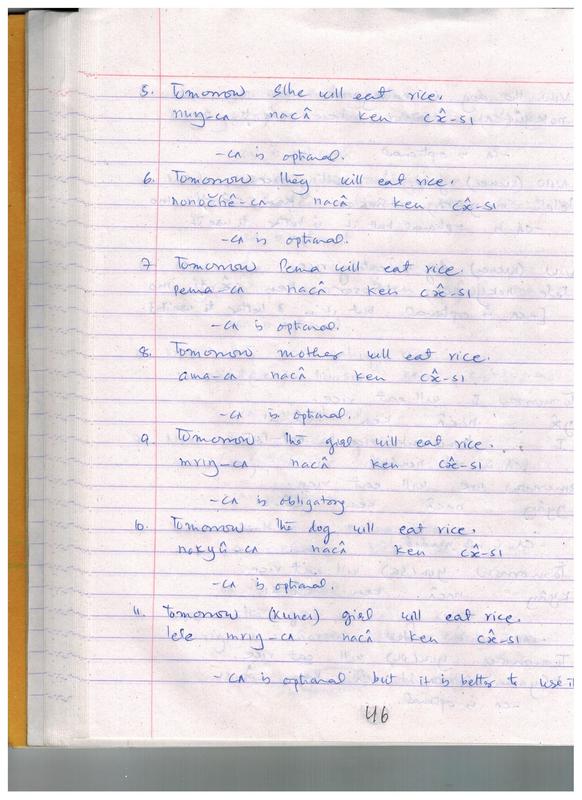 5. Tomorrow S/he will eat rice.
nuŋ-cʌ nacʌ̂ ken cʌ̂-sɪ
-cʌ is optional.
6. Tomorrow they will eat rice.
nonočhê-cʌ nacʌ̂ ken cʌ̂-sɪ
-cʌ is optional.
7 Tomorrow Pema will eat rice.
pema-cʌ nacʌ̂ ken cʌ̂-sɪ
-cʌ is optional.
8. Tomorrow mother will eat rice.
ama-cʌ nacʌ̂ ken cʌ̂-sɪ
-cʌ is optional.
9. Tomorrow the girl will eat rice.
mrɪŋ-cʌ nacʌ̂ ken cʌ̂-sɪ
-cʌ is obligatory
10. Tomorrow the dog will eat rice.
nokyû-cʌ nacʌ̂ ken cʌ̂-sɪ
-cʌ is optional.
11. Tomorrow (Kunes) girl will eat rice.
lese mrɪŋ-cʌ nacʌ̂ ken cʌ̂-sɪ
-cʌ is optional but it is better to use it
46